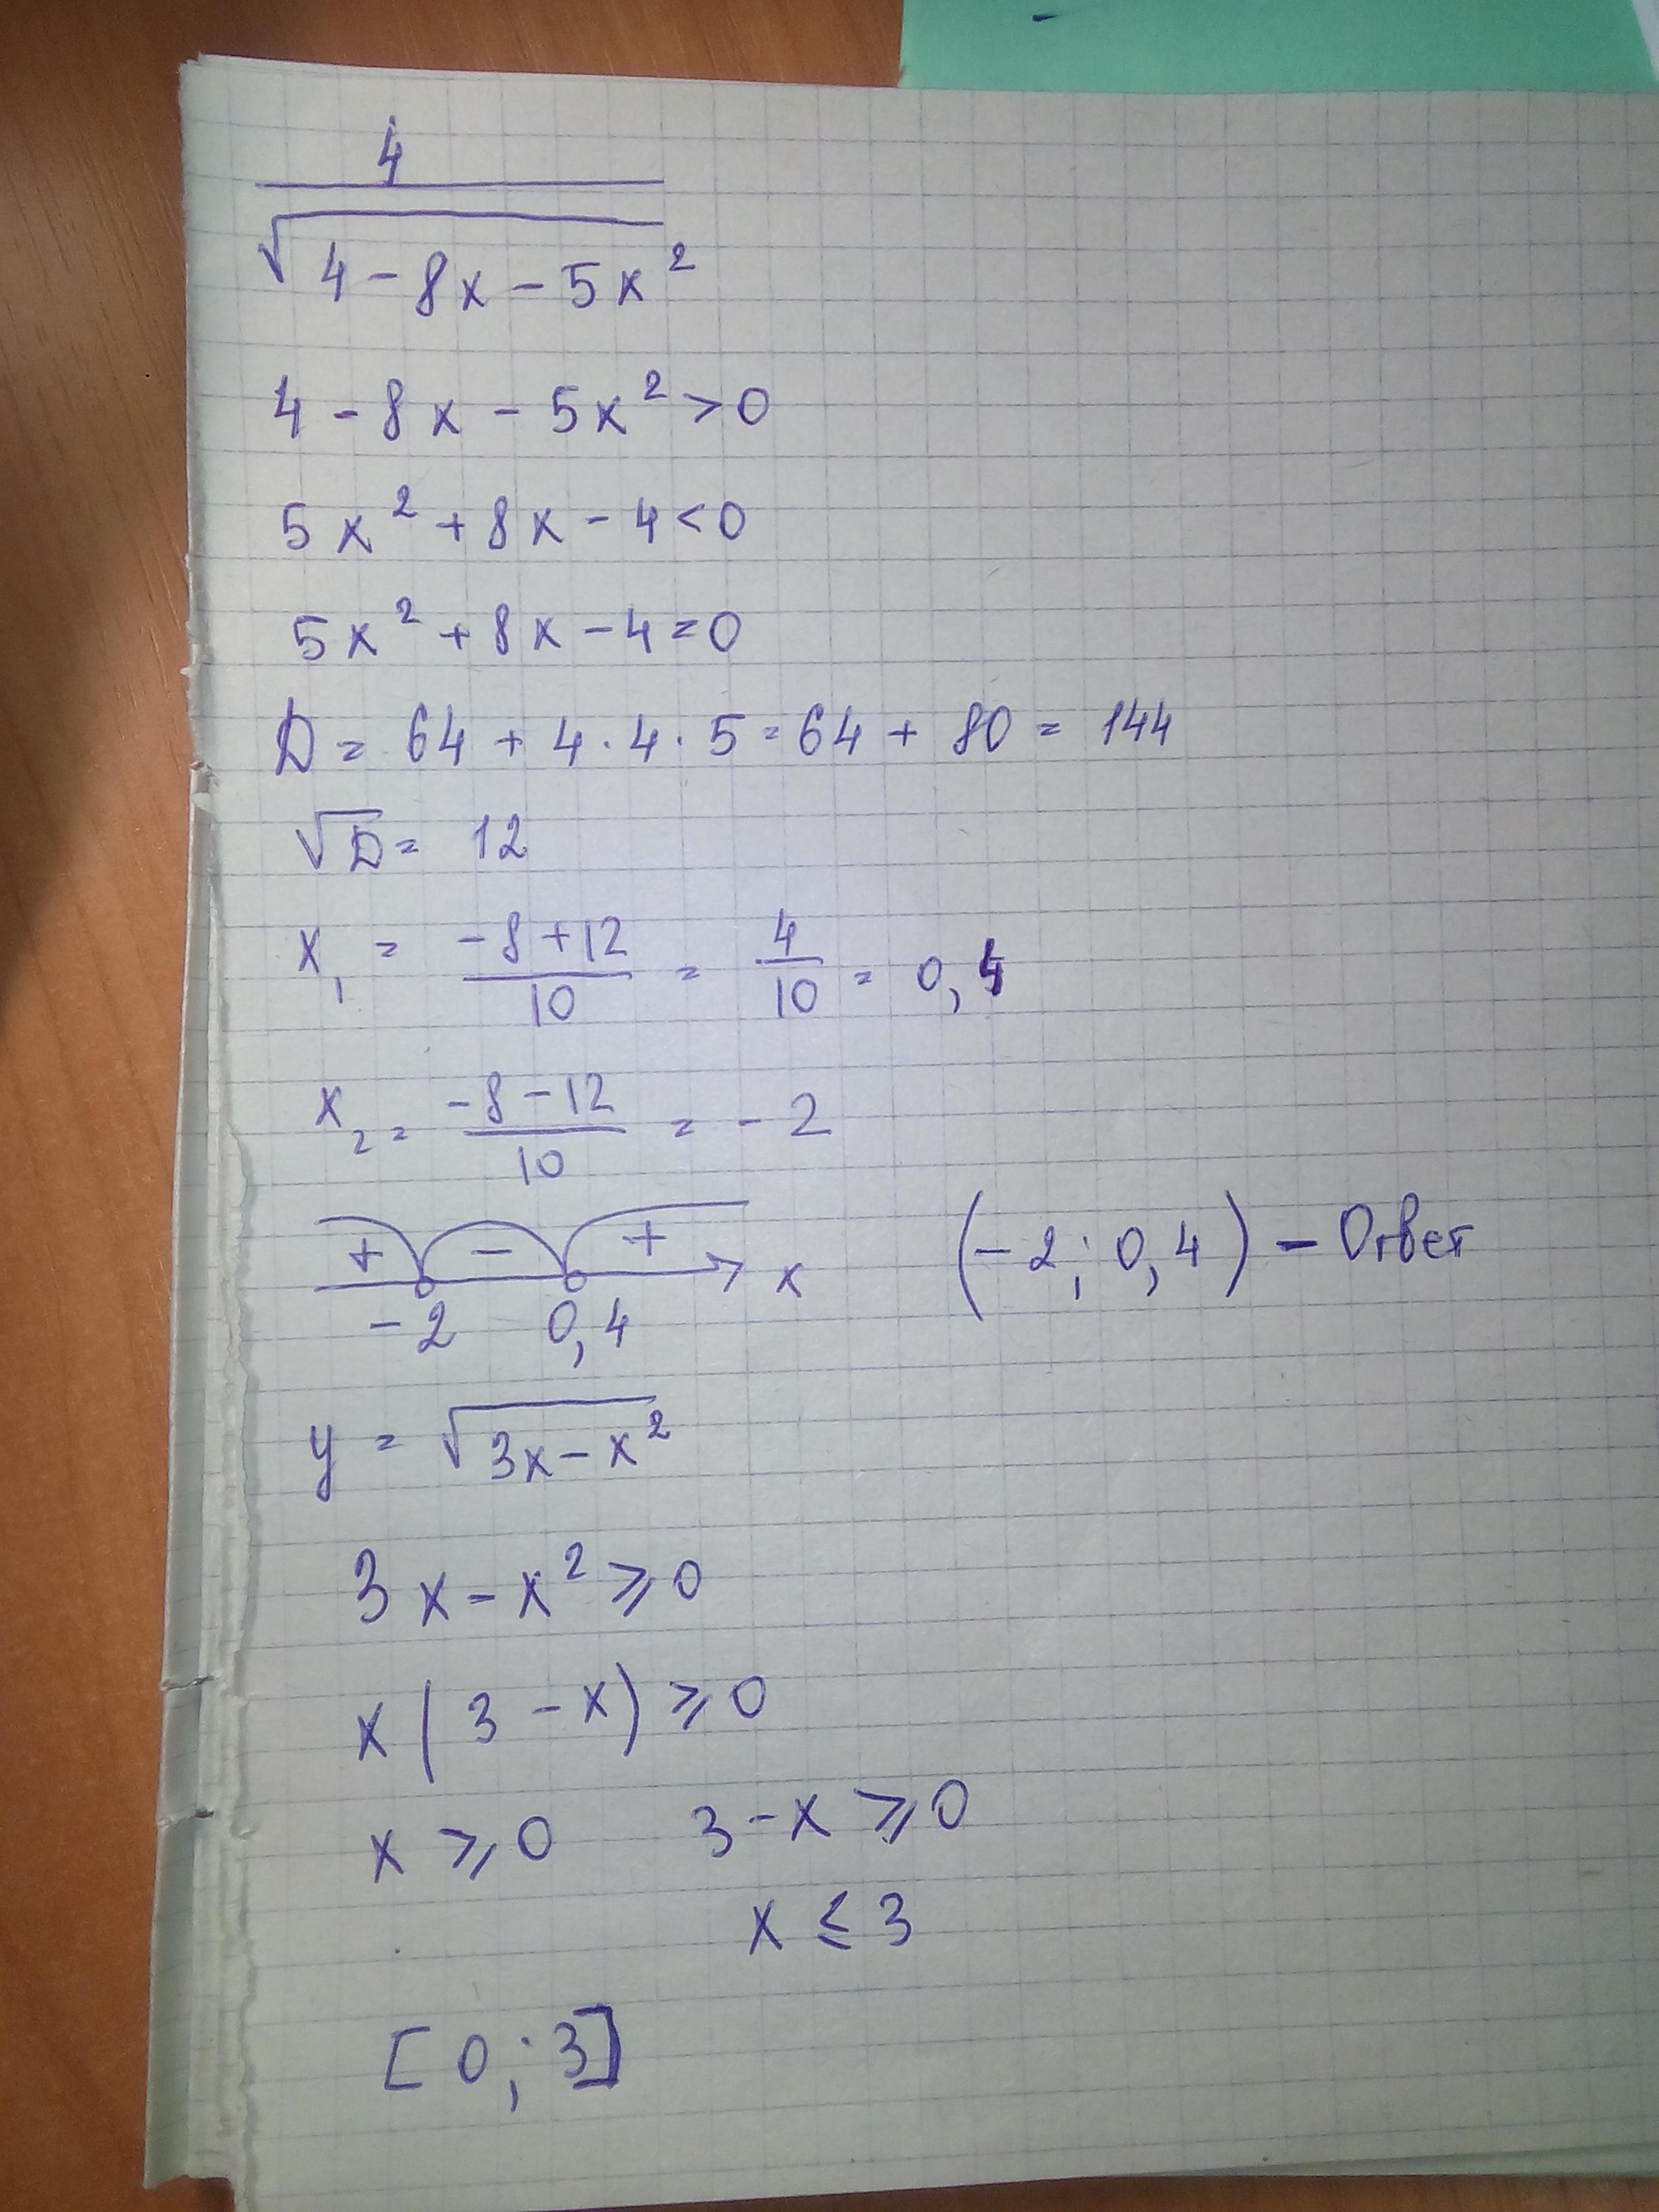 4
√4-8x-5x²
4-8x-5x²>0
5x²+8x-4<0
5x²+8x-4=0
D=64+4·4·5=64+80=144
√D=12
x₁=(-8+12)/10=4/10=0,4
x₂=(-8-12)/10=-2
+ - + x
-2 0,4
(-2;0,4)-Ответ
y=√3x-x²
3x-x²⩾0
x(3-x)⩾0
x⩾0 3-x⩾0
x≤3
[0;3]